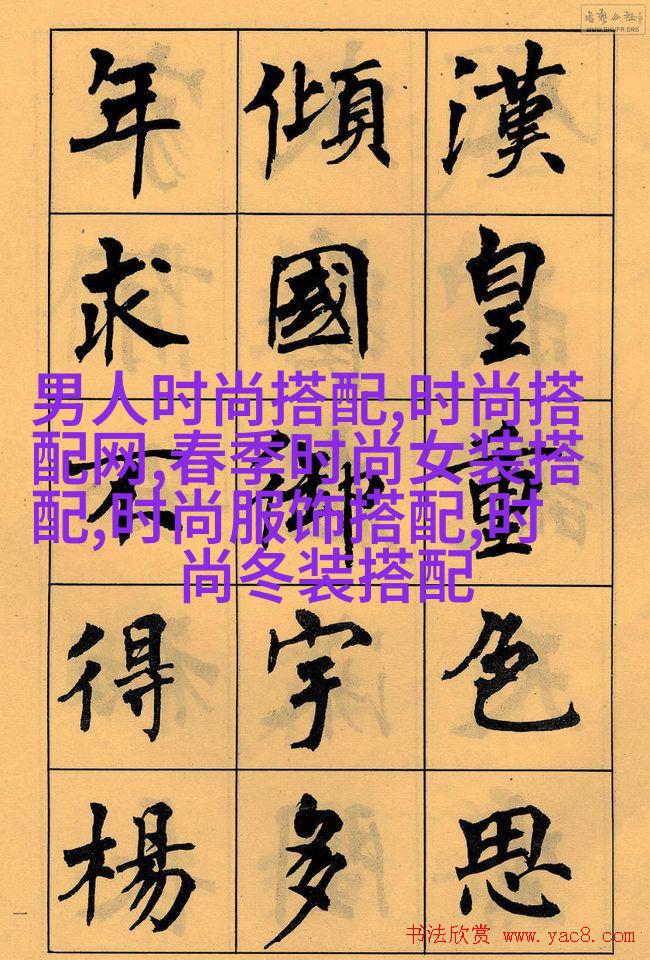 漢皇重色思
傾國御宇多
年求不得楊
男人时尚搭配,时尚搭
配网,春季时尚女装搭
配,时尚服饰搭配,时
尚冬装搭配
书法欣赏 www.yac8.com
WWW.SHUFA.ORG
一